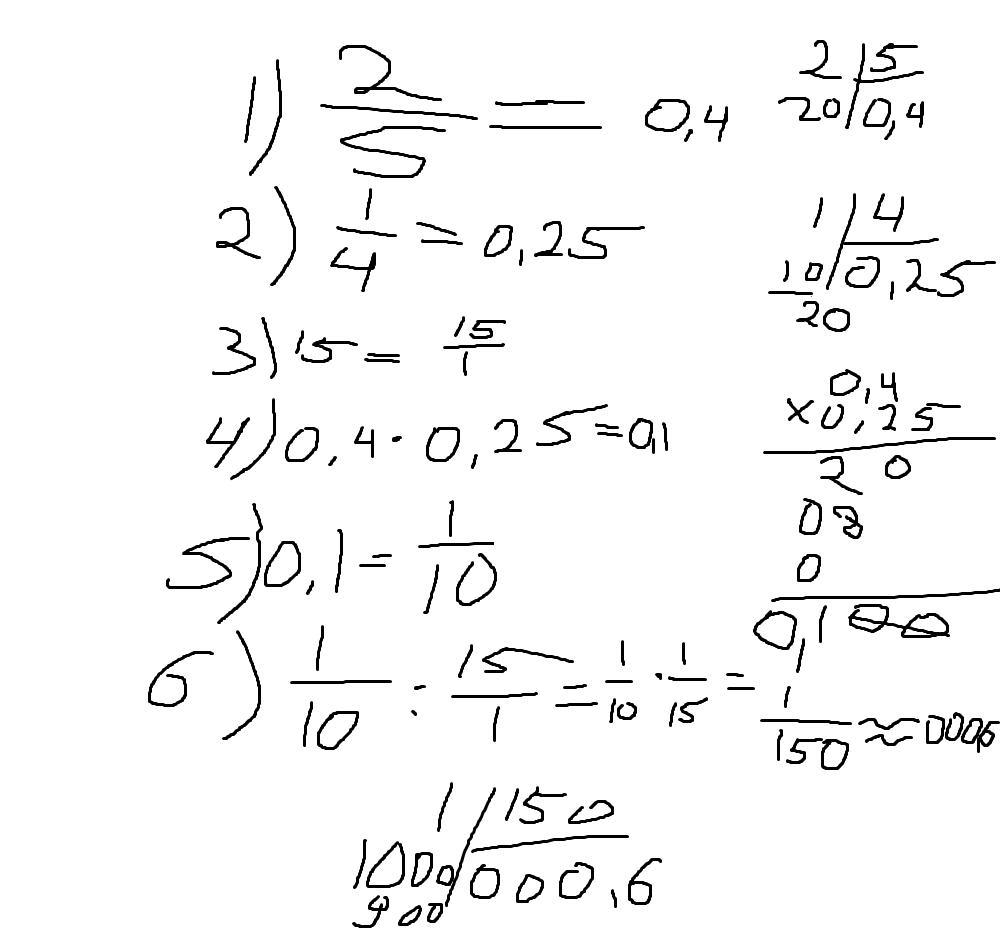 1) 2/5 = 0,4
2 | 5
20 | 0,4
2) 1/4 = 0,25
1 | 4
10 | 0,25
20
3) 15 = 15/1
4) 0,4 · 0,25 = 0,1
0,4
× 0,25
2 0
08
0
0,100
5) 0,1 = 1/10
6) 1/10 : 15/1 = 1/10 · 1/15 = 1/150 ≈ 000,6
1 | 150
1000 | 000,6
900